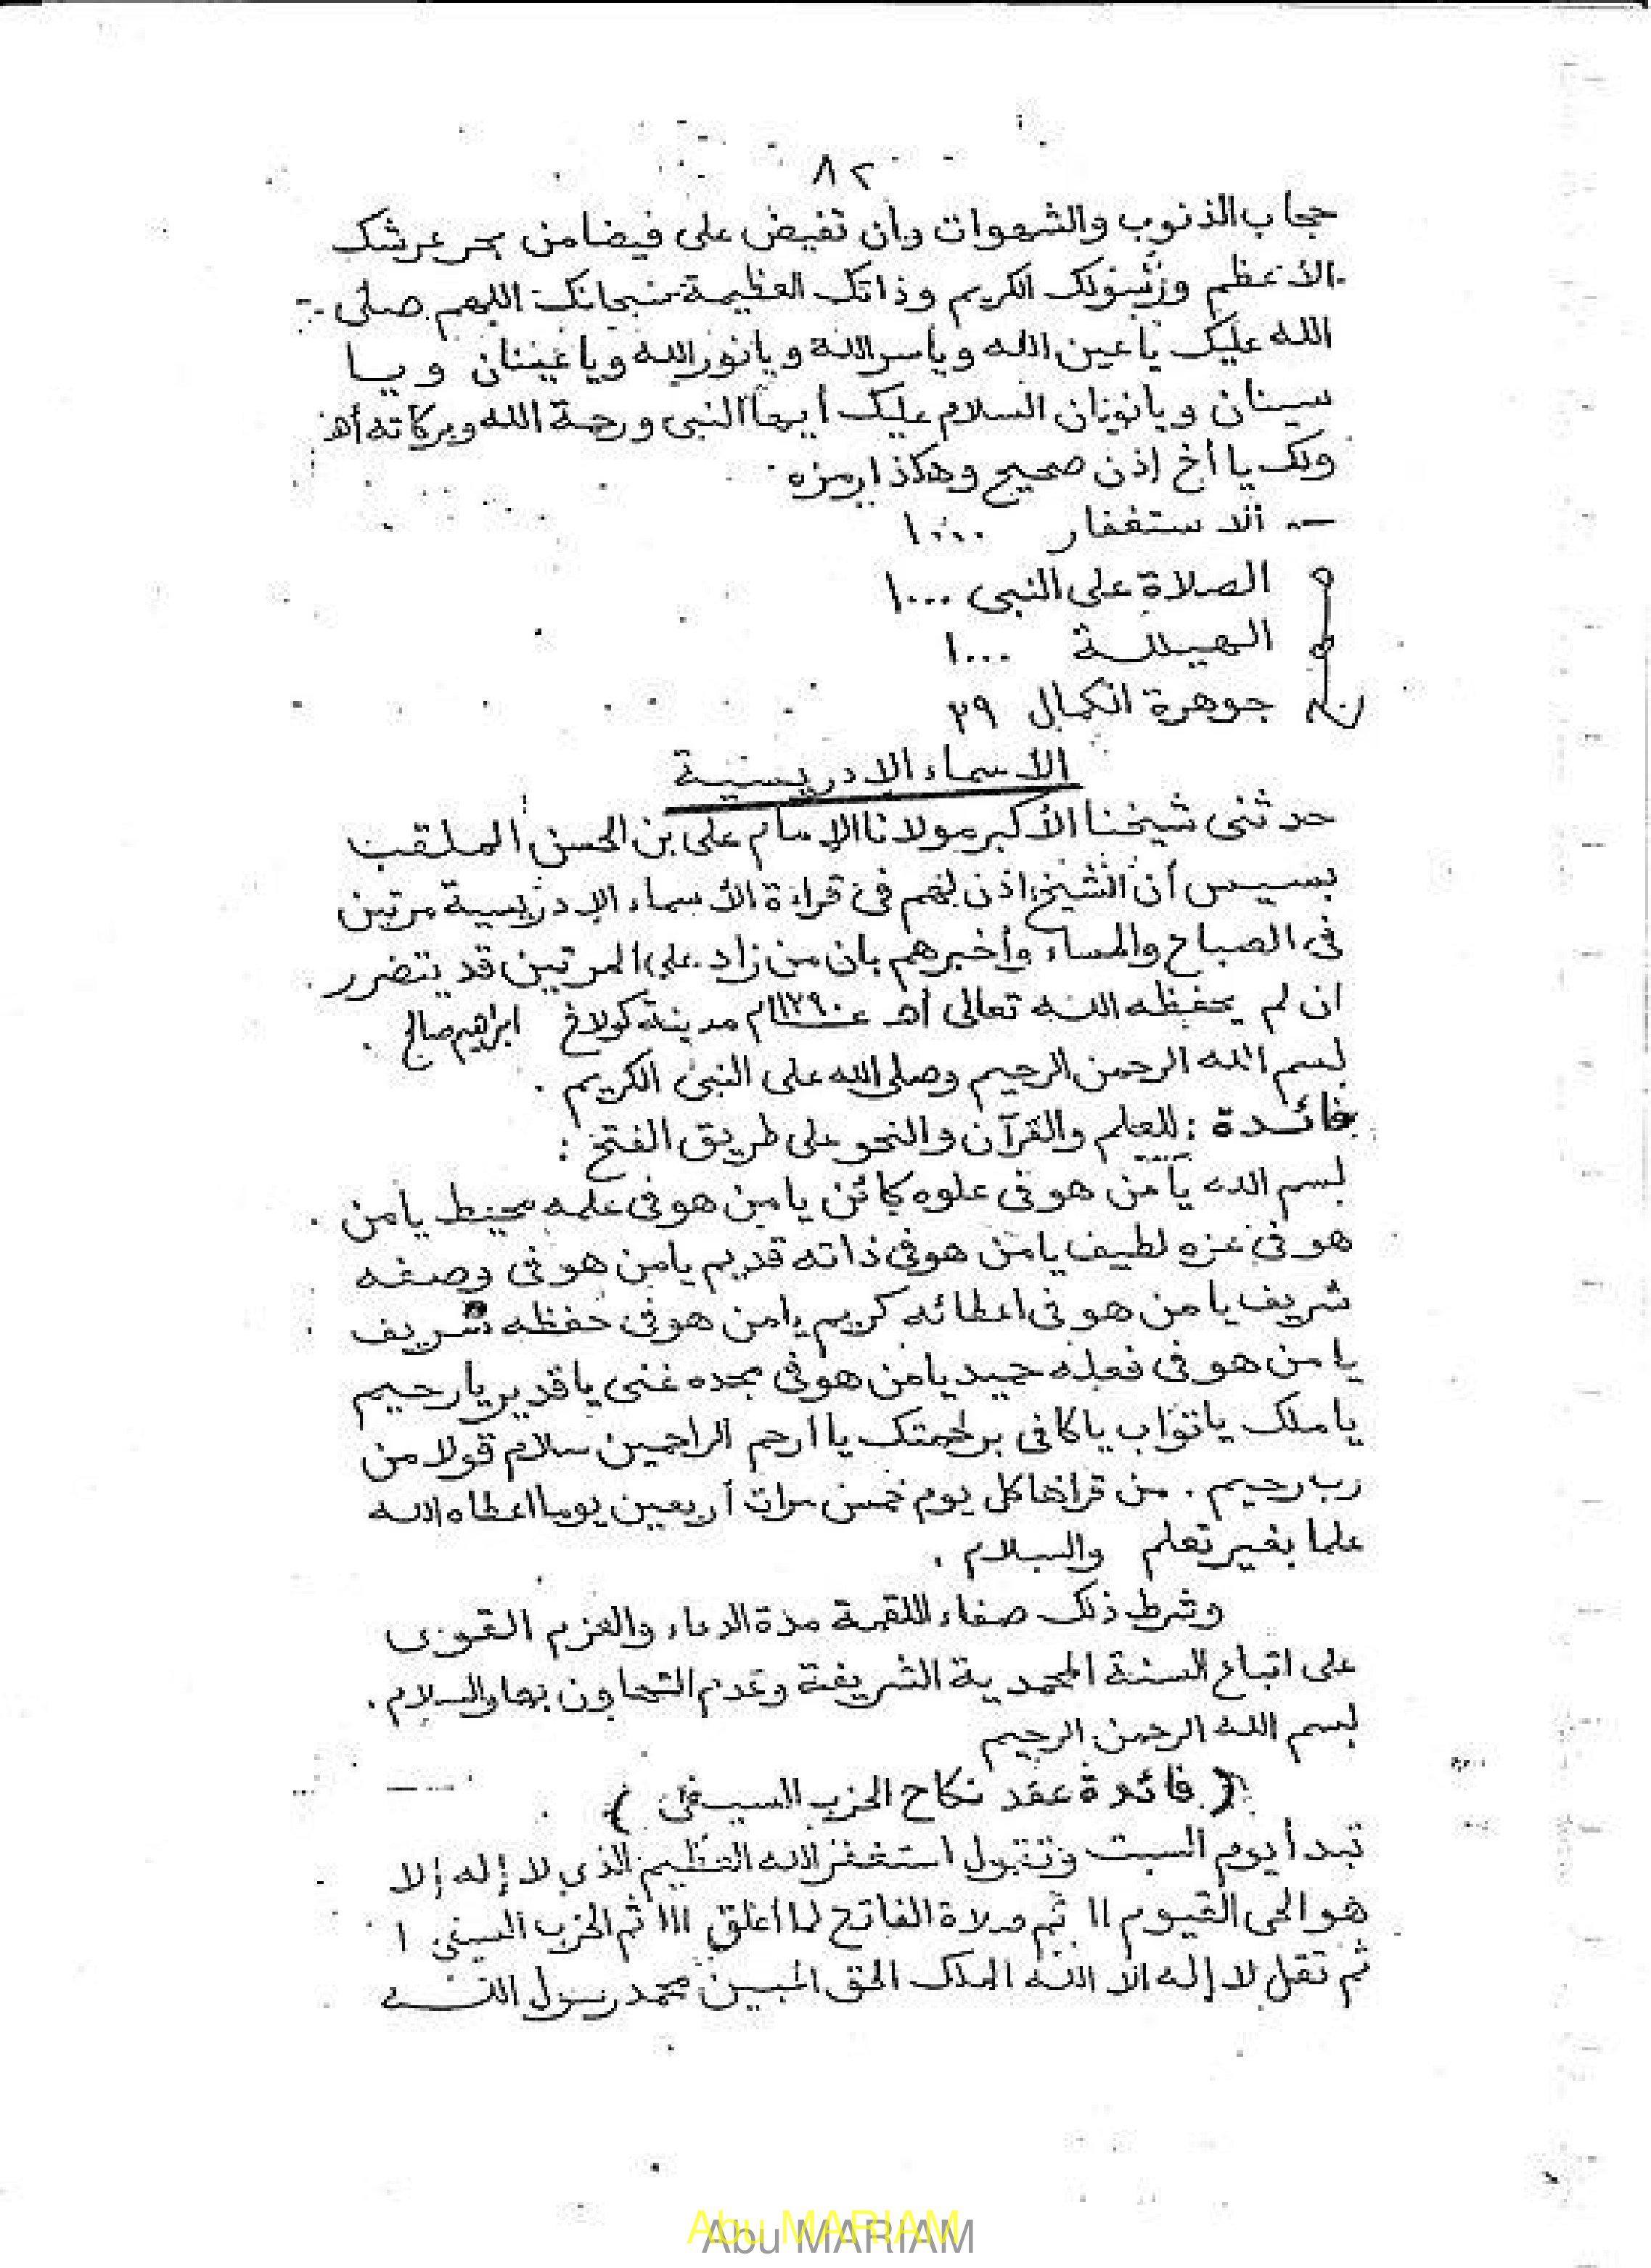 ٨٢
حجاب الذنوب والشهوات وأن تفيض على فيضا من بحر عرشك
الأعظم ورسولك الكريم وذاتك العظيمة سبحانك اللهم صلى
الله عليك يا عين الله ويا سر الله ويا نور الله ويا عينان ويا
سينان ويا نونان السلام عليك أيها النبى ورحمة الله وبركاته أهـ
ولك يا أخ إذن صحيح وهكذا رمزه
— الاستغفار ١٠٠٠
الصلاة على النبى ١٠٠٠
الهيللة ١٠٠٠
جوهرة الكمال ٢٩
الاسماء الإدريسية
حدثنى شيخنا الأكبر مولانا الإمام على بن الحسن الملقب
بسيس أن الشيخ اذن لهم فى قراءة الأسماء الإدريسية مرتين
فى الصباح والمساء وأخبرهم بان من زاد على المرتين قد يتضرر
ان لم يحفظه الله تعالى أهـ مدينة كولاخ ابراهيم صالح .
بسم الله الرحمن الرحيم وصلى الله على النبى الكريم .
فائدة : للعلم والقرآن والنحو على طريق الفتح :
بسم الله يا من هو فى علوه كائن يا من هو فى علمه محيط يا من
هو فى عزه لطيف يا من هو فى ذاته قديم يا من هو فى وصفه
شريف يا من هو فى اعطائه كريم يا من هو فى حفظه شريف
يا من هو فى فعله حميد يا من هو فى مجده غنى يا قدير يا رحيم
يا ملك يا تواب يا كافى برحمتك يا ارحم الراحمين سلام قولا من
رب رحيم . من قرأها كل يوم خمس مرات أربعين يوما اعطاه الله
علما بغير تعلم والسلام .
وشرط ذلك صفاء اللقمة مدة الدعاء والعزم القوى
على اتباع السنة المحمدية الشريفة وعدم التهاون بها والسلام .
بسم الله الرحمن الرحيم
( فائدة عقد نكاح الحزب السيفى )
تبدأ يوم السبت وتقول استغفر الله العظيم الذى لا إله إلا
هو الحى القيوم ١١ ثم صلاة الفاتح لما أغلق ١١١ ثم الحزب السيفى ١
ثم تقل لا إله الا الله الملك الحق المبين محمد رسول الله
Abu MARIAM
Abu MARIAM